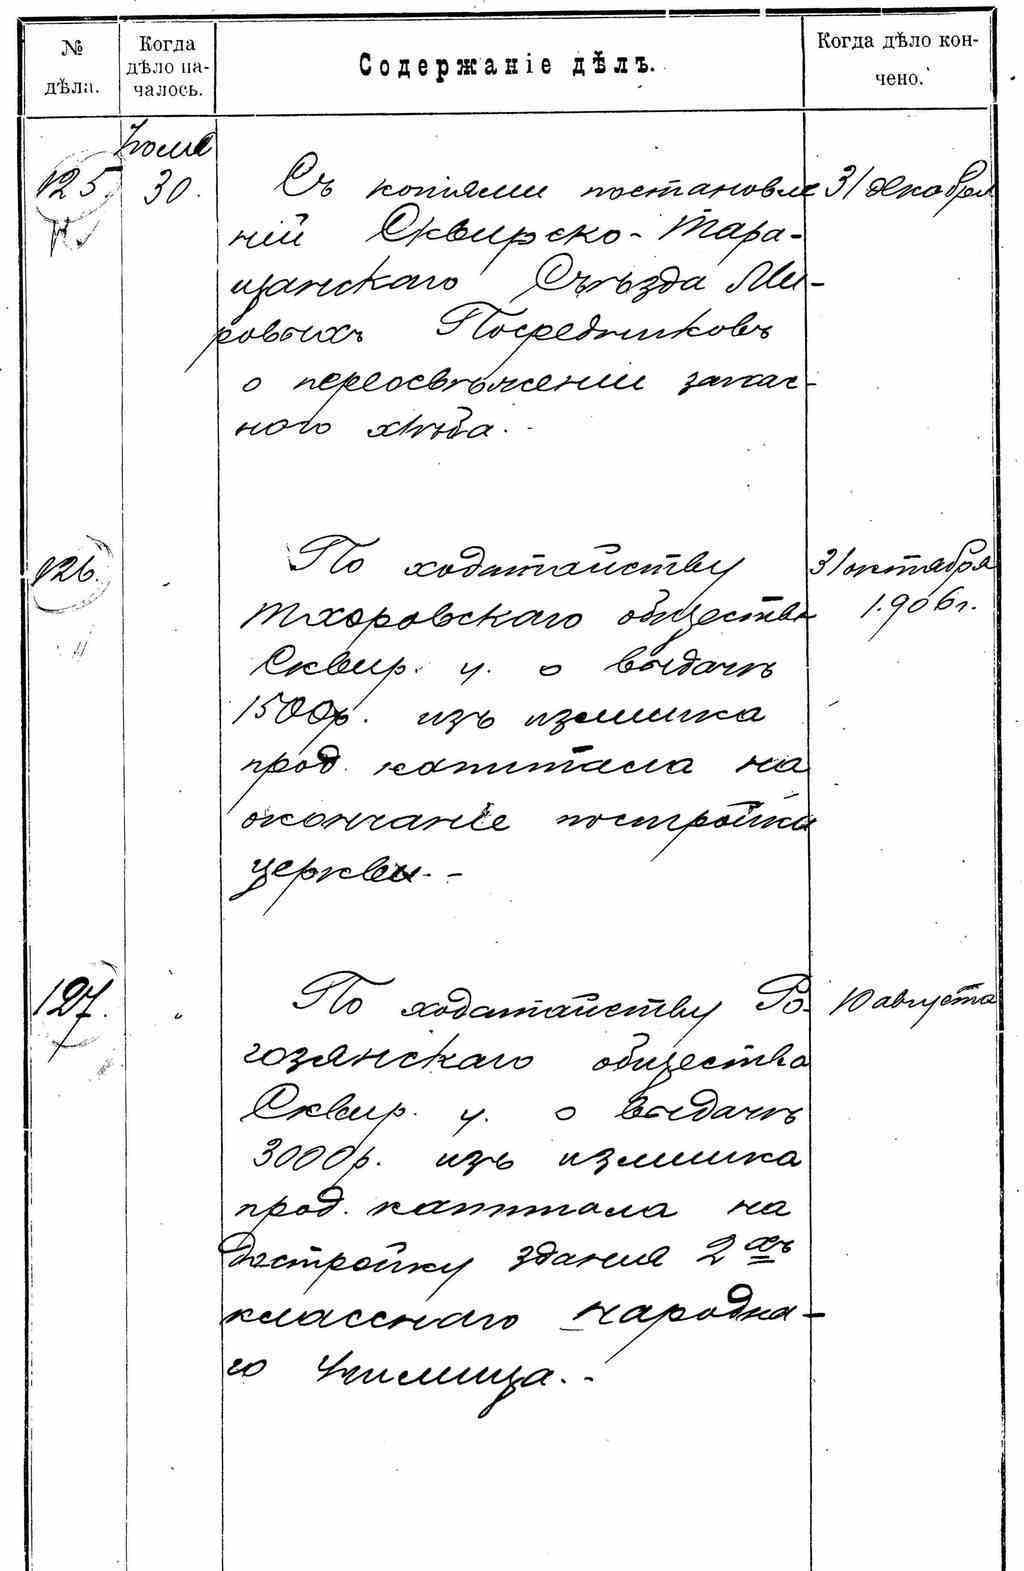 № дѣла.
Когда дѣло на-
чалось.
Содержаніе дѣлъ.
Когда дѣло кон-
чено.
125
30.
Съ копіями постановле
ній Сквирско-Тара-
щанскаго Съѣзда Ми-
ровыхъ Посредниковъ
о переосвѣженіи запас-
ного хлѣба.
31 декабря
126.
По ходатайству
Тхоровскаго общества
Сквир. у. о выдачѣ
1500р. изъ излишка
прод. капитала на
окончаніе постройки
церкви.
31 октября
1906г.
127.
"
По ходатайству Ро-
гозянскаго общества
Сквир. у. о выдачѣ
3000р. изъ излишка
прод. капитала на
достройку зданія 2хъ
класснаго народна-
го училища.
10 августа